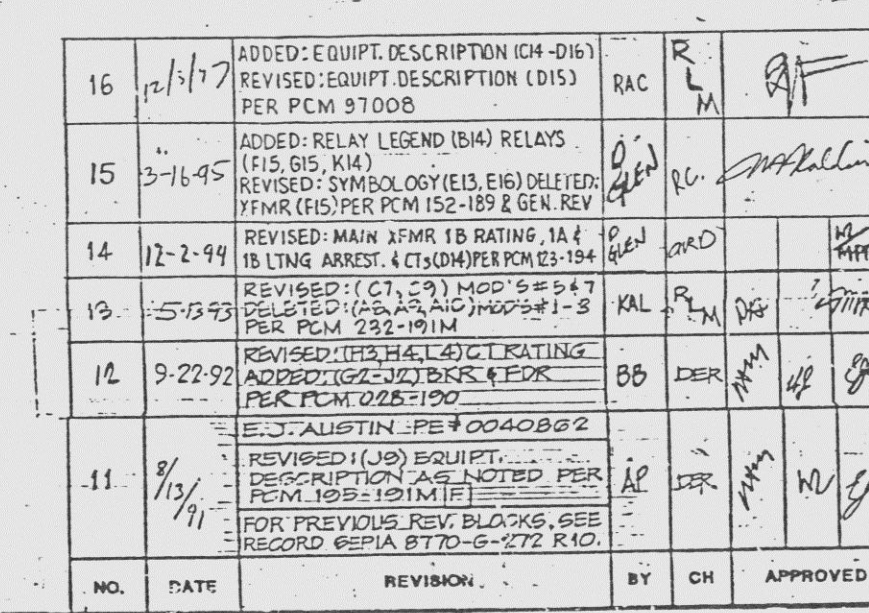 16 12/3/97 ADDED: EQUIPT. DESCRIPTION (C14-D16) RLM
REVISED: EQUIPT. DESCRIPTION (D15) RAC
PER PCM 97008
15 3-16-95 ADDED: RELAY LEGEND (B14) RELAYS D GLEN RG.
(F15, G15, K14)
REVISED: SYMBOLOGY (E13, E16) DELETED:
XFMR (F15) PER PCM 152-189 & GEN. REV
14 12-2-94 REVISED: MAIN XFMR 1B RATING, 1A & D GLEN GRD
1B LTNG ARREST. & CTs (D14) PER PCM 123-194
13 5-13-93 REVISED: (C7, C9) MOD'S #5&7 KAL RLM
DELETED: (A8, A9, A10) MOD'S #1-3
PER PCM 232-191M
12 9-22-92 REVISED: (H3, H4, L4) CT RATING BB DER
ADDED: (G2-J2) BKR & FDR
PER PCM 028-190
E.J. AUSTIN PE# 0040862
11 8/13/91 REVISED: (J9) EQUIPT. AP DER
DESCRIPTION AS NOTED PER
PCM 195-191M F
FOR PREVIOUS REV. BLOCKS, SEE
RECORD SEPIA 8770-G-272 R10.
NO. DATE REVISION BY CH APPROVED